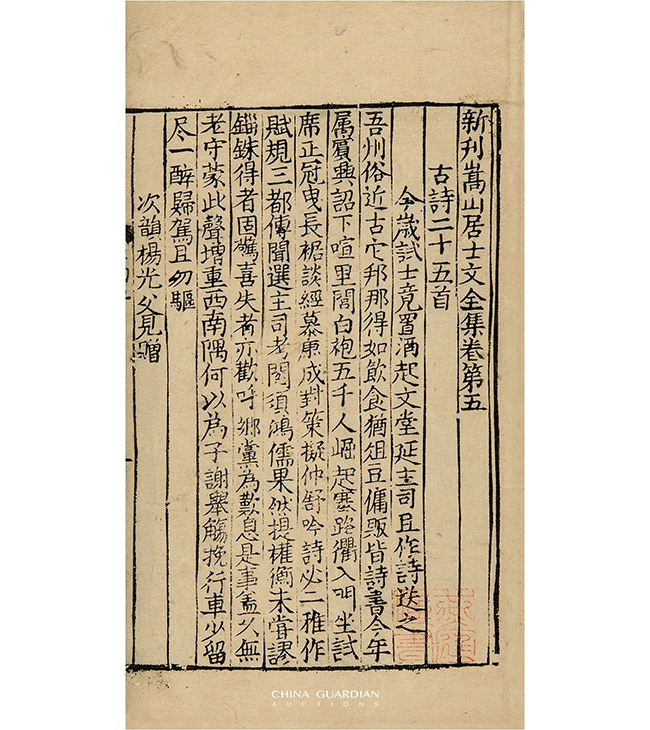 新刊嵩山居士文全集卷第五
古詩二十五首
今歲試士竟置酒起文堂延主司且作詩送之
吾州俗近古它邦那得如飲食猶俎豆傭販皆詩書今年
属賓興詔下喧里閭白袍五千人崛起塞路衢入門坐試
席正冠曳長裾談經慕康成對策擬仲舒吟詩必二雅作
賦規三都傳聞選主司考閱須鴻儒果然提權衡未嘗謬
錙銖得者固驚喜失者亦歡呼鄉黨為歎息是事盖久無
老守蒙此聲增重西南隅何以為子謝舉觴挽行車少留
尽一醉歸駕且勿驅
次韻楊光父見贈
CHINA GUARDIAN
AUCTIONS